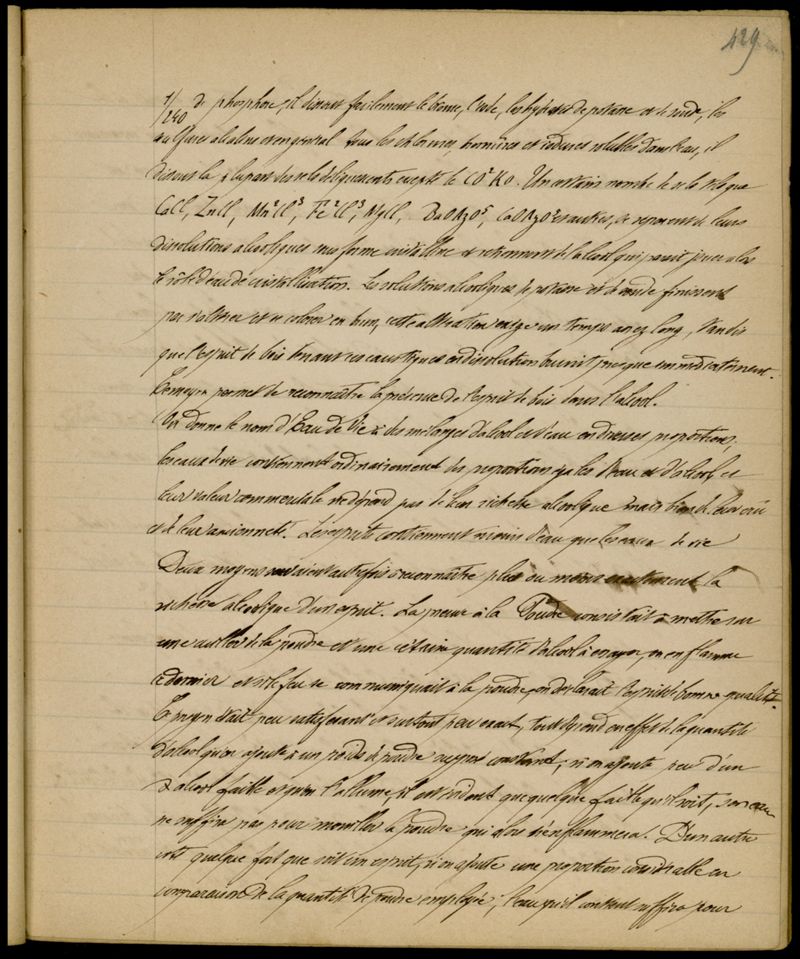 429
1/240 de phosphore, il dissout facilement le brome, l'iode, les hydrates de potasse et de soude, les
sulfures alcalins et en général tous les chlorures, bromures et iodures solubles dans l'eau, il
dissout la plupart des sels déliquescents excepté le CO²KO. Un certain nombre de sels tels que
CaCl, ZnCl, Mn²Cl³, Fe²Cl³, MgCl, CaOAzO⁵ et autres, se séparent de leurs
dissolutions alcooliques sous forme cristalline et retiennent de l'alcool qui parait jouer alors
le rôle d'eau de cristallisation. Les solutions alcooliques de potasse et de soude finissent
par s'altérer et se colorer en brun, cette altération exige un temps assez long, tandis
que l'esprit de bois tenant ces caustiques en dissolution brunit presque immédiatement.
Ce moyen permet de reconnaître la présence de l'esprit de bois dans l'alcool.
On donne le nom d'Eau de Vie à des mélanges d'alcool et d'eau en diverses proportions,
les eaux de vie contiennent ordinairement des proportions égales d'eau et d'alcool et
leur valeur commerciale ne dépend pas de leur richesse alcoolique mais bien de leur crû
et de leur ancienneté. Les esprits contiennent moins d'eau que les eaux de vie
Deux moyens servaient autrefois à reconnaître plus ou moins exactement la
richesse alcoolique d'un esprit. La preuve à la Poudre consistait à mettre sur
une cuiller de la poudre et une certaine quantité d'alcool à essayer, on enflamme
ce dernier et si le feu se communiquait à la poudre, on déclarait l'esprit de bonne qualité.
Ce moyen était peu satisfaisant et surtout peu exact, tout dépend en effet de la quantité
d'alcool qu'on ajoute à un poids de poudre supposé constant; si on ajoute peu d'un
alcool faible et qu'on l'allume, il est évident que quelque faible qu'il soit, son eau
ne suffira pas pour mouiller la poudre qui alors s'enflammera. D'un autre
côté quelque fort que soit un esprit, si on ajoute une proportion considérable en
comparaison de la quantité de poudre employée, l'eau qu'il contient suffira pour